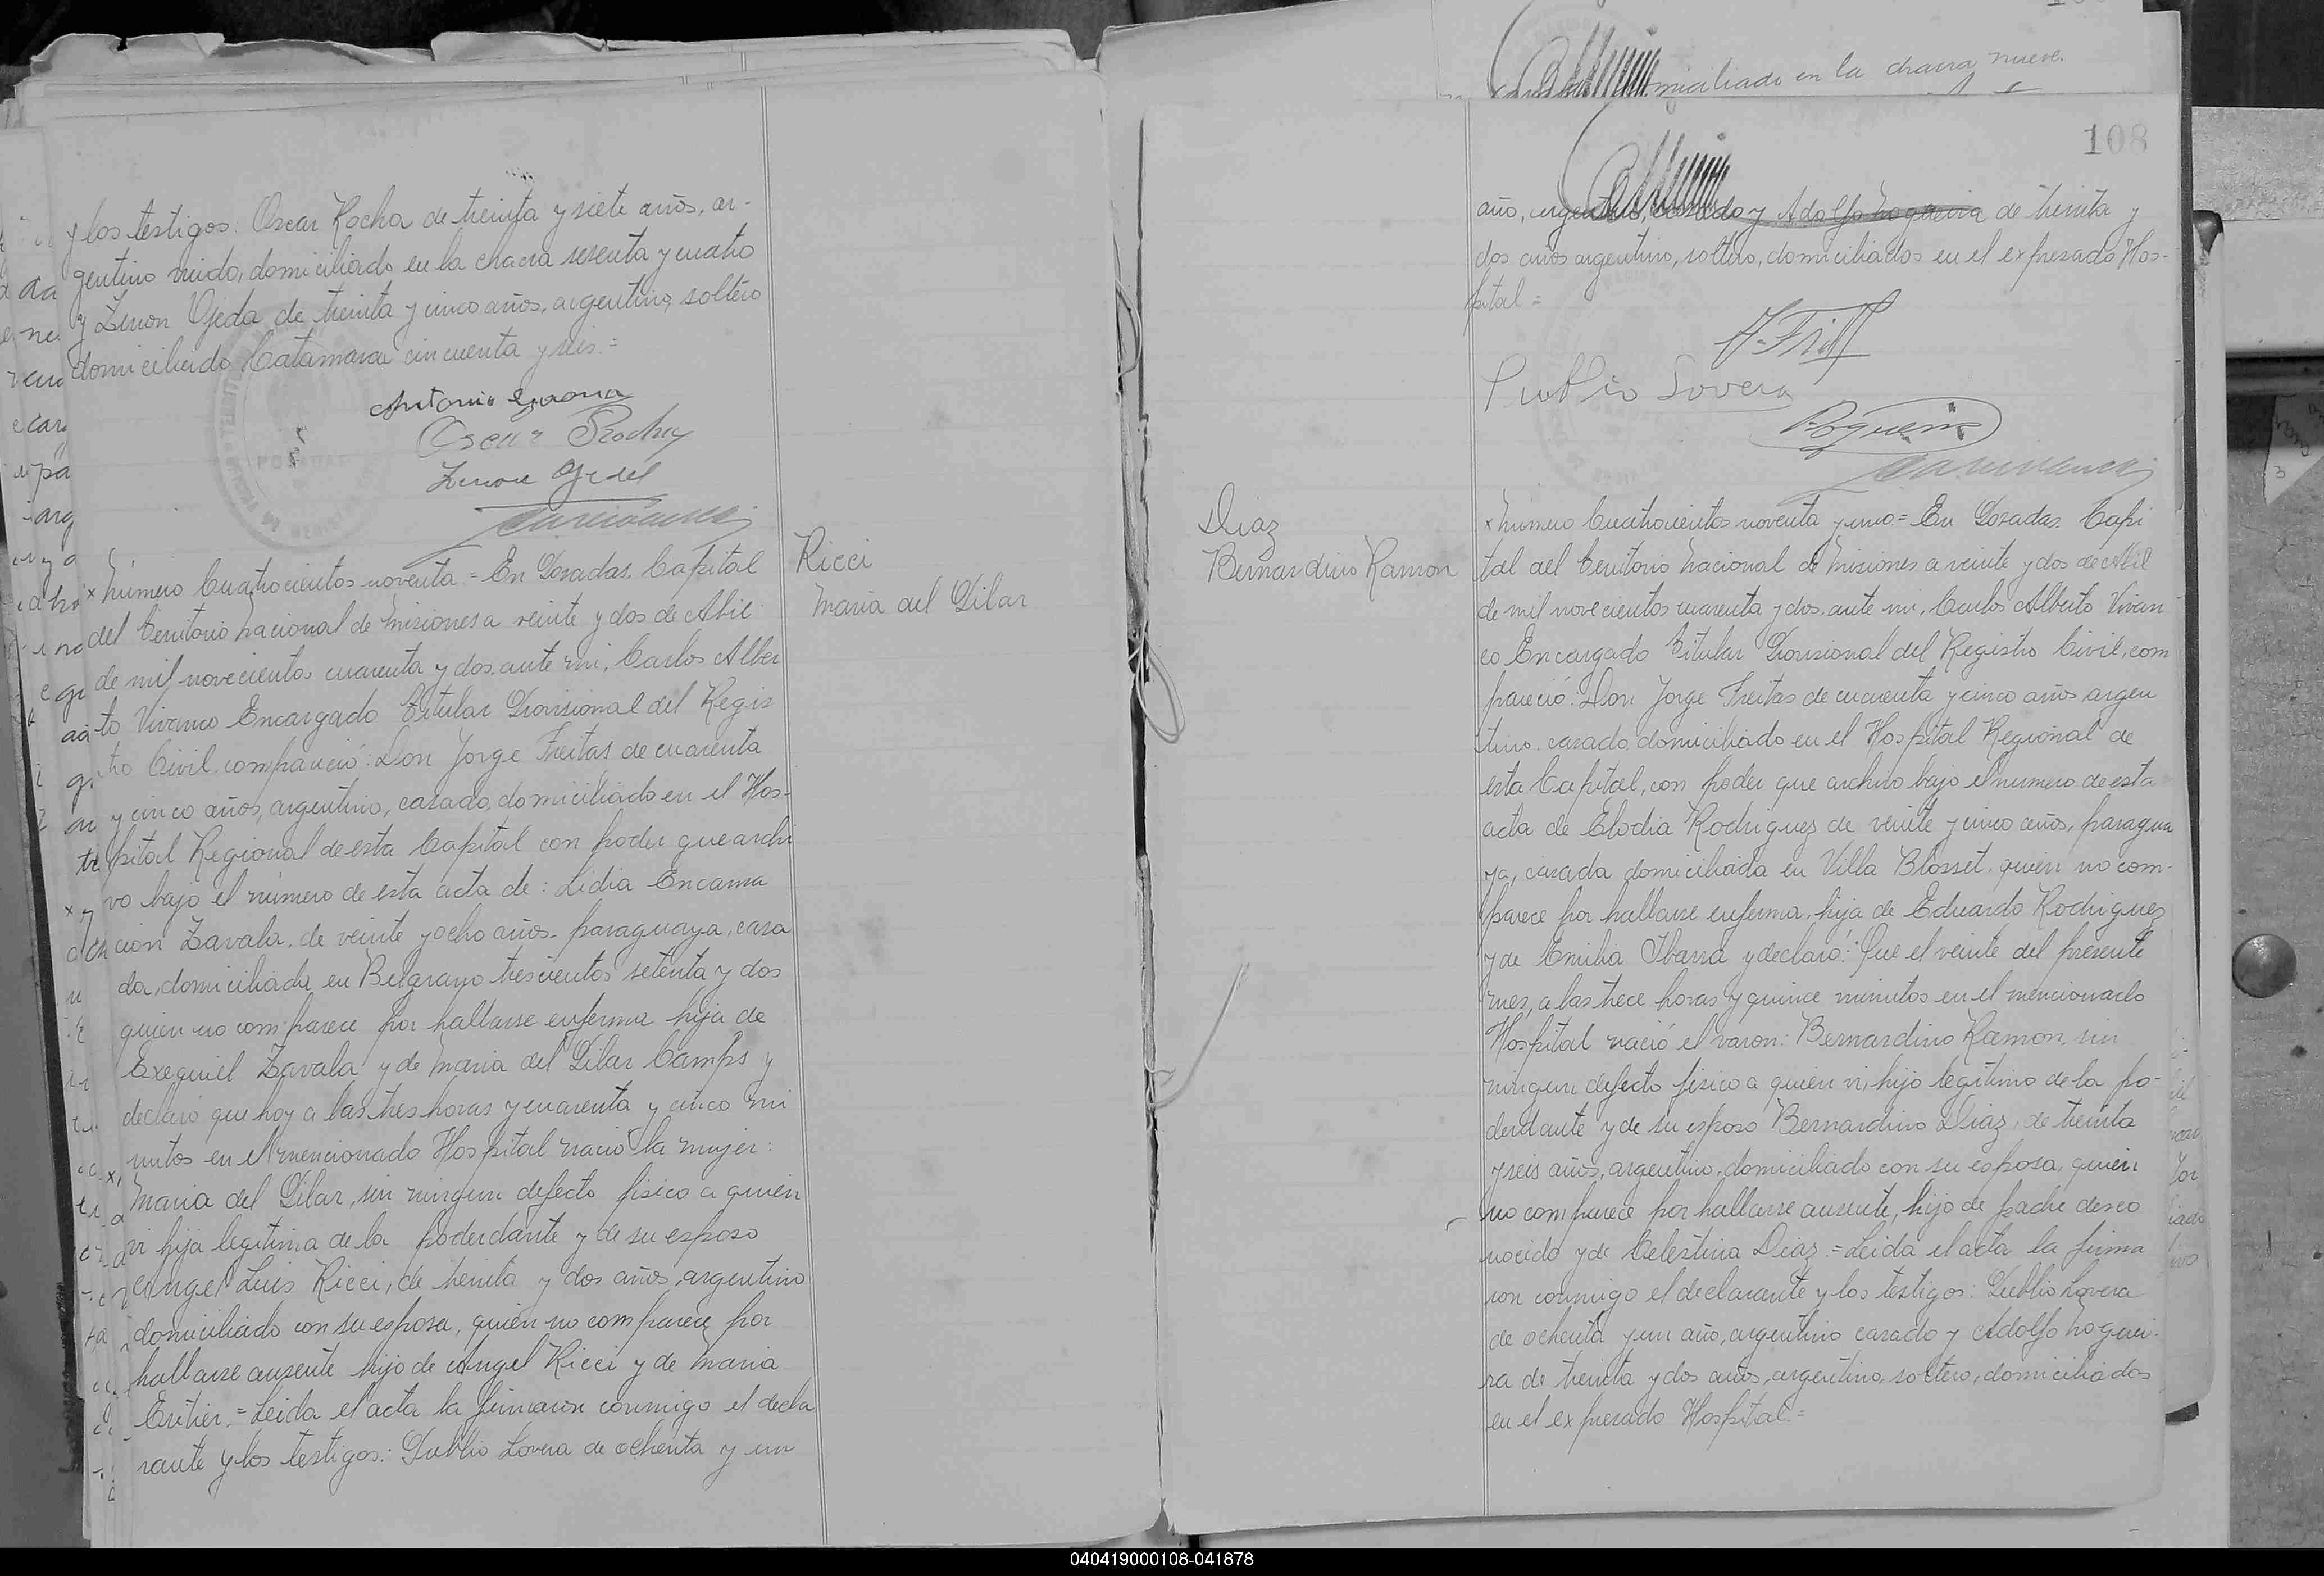 y los testigos: Oscar Rocha de treinta y siete años, ar-
gentino viudo, domiciliado en la chacra sesenta y cuatro
y Zenon Ojeda de treinta y cinco años, argentino, soltero
domiciliado Catamarca cincuenta y seis =
Antonio Gaona
Oscar Rocha
Número Cuatrocientos noventa = En Posadas. Capital
del Territorio Nacional de Misiones a veinte y dos de Abril
de mil novecientos cuarenta y dos, ante mi, Carlos Alber
to Vivanco Encargado Titular Provisional del Regis
tro Civil, compareció: Don Jorge Freitas de cuarenta
y cinco años, argentino, casado, domiciliado en el Hos-
pital Regional de esta Capital con poder que archi
vo bajo el número de esta acta de: Lidia Encarna
cion Zavala, de veinte y ocho años, paraguaya, casa
da, domiciliada en Belgrano trescientos setenta y dos
quien no comparece por hallarse enferma hija de
Exequiel Zavala y de Maria del Pilar Camps y
declaró que hoy a las tres horas y cuarenta y cinco mi
nutos en el mencionado Hospital nació la mujer:
Maria del Pilar, sin ningun defecto fisico a quien
vi hija legitima de la poderdante y de su esposo
Angel Luis Ricci, de treinta y dos años, argentino
domiciliado con su esposa, quien no comparece por
hallarse ausente hijo de Angel Ricci y de Maria
= Leida el acta la firmaron conmigo el decla
rante y los testigos: Publio Lovera de ochenta y un
Ricci
Maria del Pilar
miciliado en la chacra nueve.
108
año, argentino, casado y Adolfo Nogueira de treinta y
dos años argentino, soltero, domiciliados en el expresado Hos-
pital =
Publio Lovera
Diaz
Bernardino Ramon
x Número Cuatrocientos noventa y uno = En Posadas. Capi
tal del Territorio Nacional de Misiones a veinte y dos de Abril
de mil novecientos cuarenta y dos, ante mi, Carlos Alberto Vivan
co Encargado Titular Provisional del Registro Civil, com
pareció: Don Jorge Freitas de cuarenta y cinco años argen
tino, casado domiciliado en el Hospital Regional de
esta Capital, con poder que archivo bajo el numero de esta
acta de Elodia Rodriguez de veinte y cinco años, paragua
ya, casada domiciliada en Villa Blosset, quien no com-
parece por hallarse enferma, hija de Eduardo Rodriguez
y de Emilia Ibarra y declaró: Que el veinte del presente
mes, a las trece horas y quince minutos en el mencionado
Hospital nació el varon: Bernardino Ramon, sin
ningun defecto fisico a quien vi, hijo legitimo de la po-
derdante y de su esposo Bernardino Diaz, de treinta
y seis años, argentino, domiciliado con su esposa, quien
no comparece por hallarse ausente, hijo de padre desco
nocido y de Celestina Diaz. = Leida el acta la firma
ron conmigo el declarante y los testigos: Publio Lovera
de ochenta y un año, argentino casado y Adolfo Noguei-
ra de treinta y dos años, argentino, soltero, domiciliados
en el expresado Hospital =
040419000108-041878